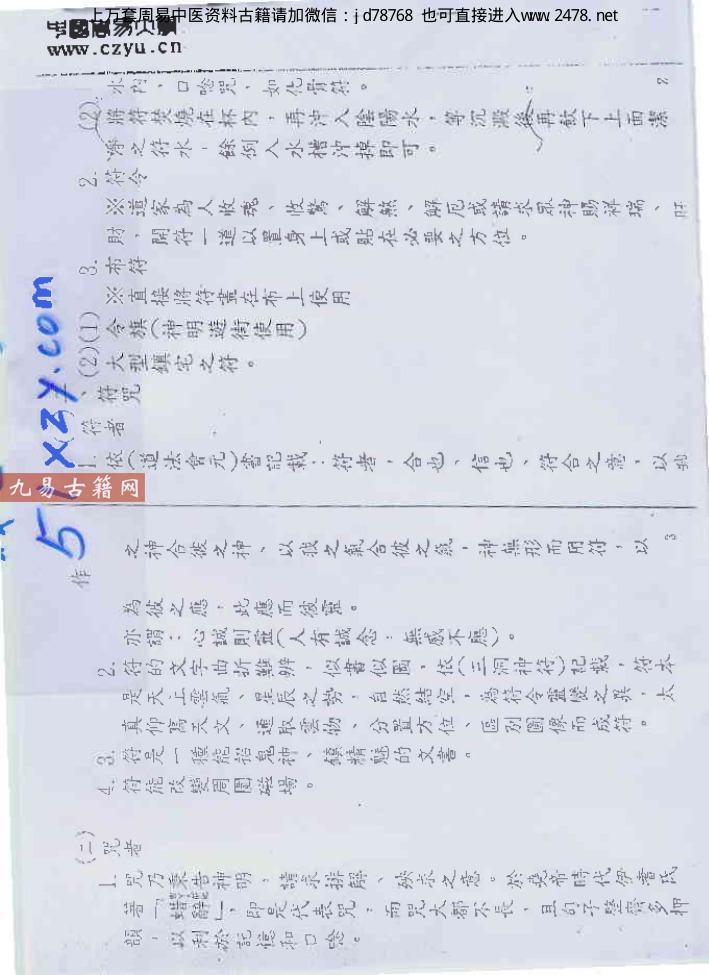 上万套周易中医资料古籍请加微信：j-d78768 也可直接进入www.2478.net
www.czyu.cn
2
水內、口唸咒、如化骨符。
(2).將符焚燒在杯內，再沖入陰陽水，等沉澱後再飲下上面潔
淨之符水，餘倒入水槽沖掉即可。
2. 符令
※道家為人收魂、收驚、解煞、解厄或請求眾神賜祥瑞、
財，開符一道以置身上或貼在必要之方位。
3. 布符
※直接將符畫在布上使用
(1)令旗(神明遊街使用)
(2)大型鎮宅之符。
、符咒
符者
1. 依(道法會元)書記載：符者，合也、信也、符合之意，以我
51xzy.com
九易古籍网
3
之神合彼之神、以我之氣合彼之氣，神無形而用符，以
作
為彼之應，此應而彼靈。
亦謂：心誠則靈(人有誠念，無感不應)。
2. 符的文字曲折難辨，似書似圖，依(三洞神符)記載，符本
是天上雲氣、星辰之勢，自然結空，為符令靈變之異，太
真仰寫天文、通取雲物、分置方位、區別圖像而成符。
3. 符是一種能招鬼神、鎮精魅的文書。
4. 符能改變周圍磁場。
(二) 咒者
1. 咒乃稟告神明，請求排解、殃示之意。於堯帝時代伊耆氏
著「蜡辭」，即是代表咒，而咒大都不長，且句子整齊多押
韻，以利於記憶和口唸。